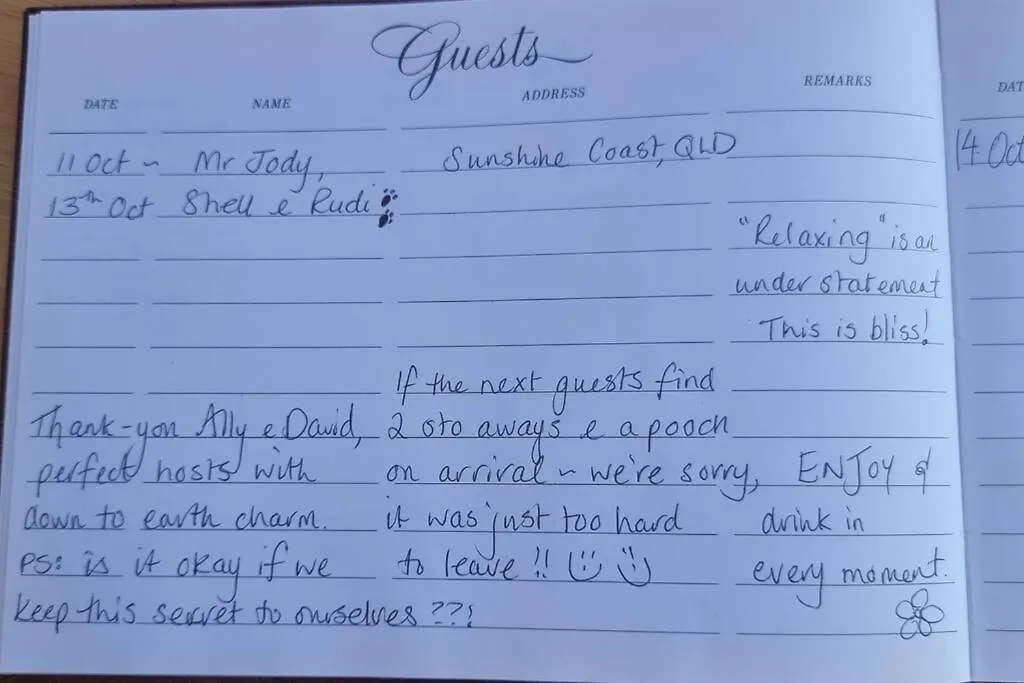 Guests
DATE NAME ADDRESS REMARKS
11 Oct ~ Mr Jody, Sunshine Coast, QLD
13th Oct Shell & Rudi
"Relaxing" is an
under statement
This is bliss!
Thank-you Ally & David,
perfect hosts with
down to earth charm.
PS: is it okay if we
keep this secret to ourselves ??!
If the next guests find
2 sto aways & a pooch
on arrival ~ we're sorry,
it was just too hard
to leave !!
ENJOY &
drink in
every moment.
DAT
14 Oct